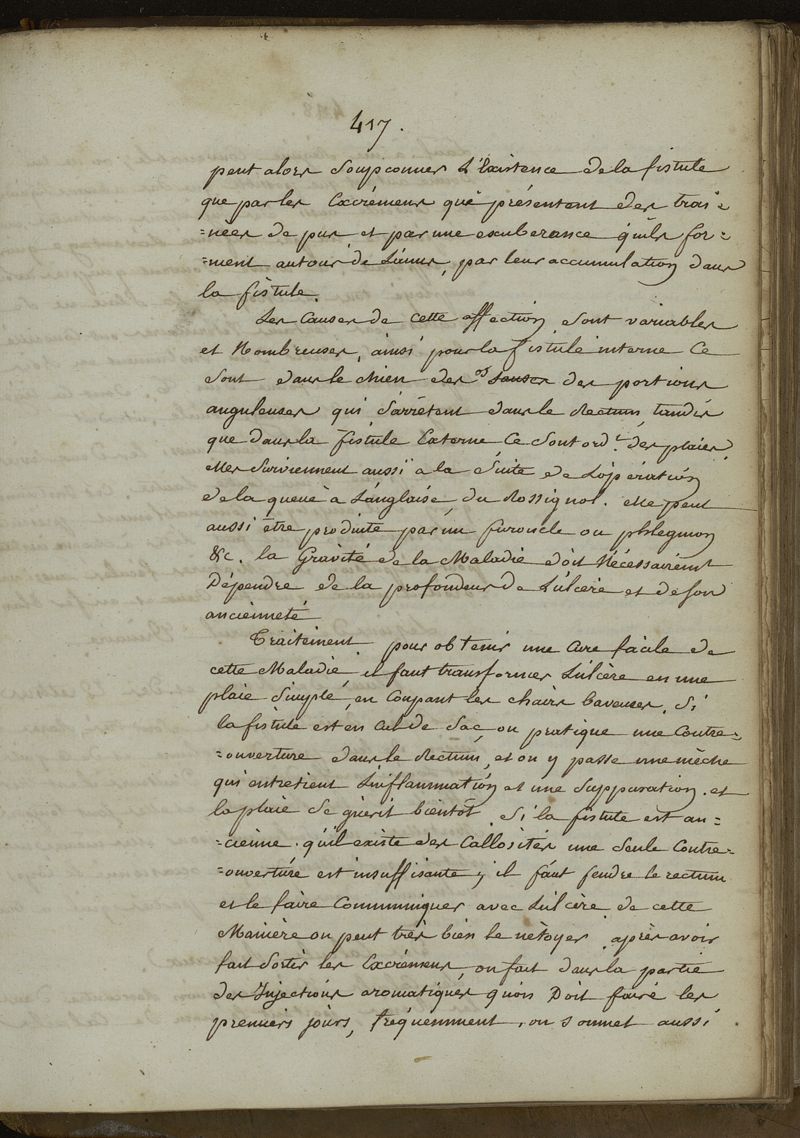 417.
peut alors soupconner l'Existence de la fistule
que par les Excrémens qui présentent des trai=
=nées de pus et par une exuberance qu'ils for=
=ment autour de L'anus, par leur accumulation dans
la fistule.
Les Causes de cette affection sont variables
et Nombreuses, ainsi pour la fistule interne Ce
sont dans le chien des os des portions
anguleuses qui s'arrêtent dans le Rectum tandis
que dans la fistule Externe Ce sont ord.t des plaies,
elles surviennent aussi a la Suite de L'opération
de la queue a L'anglaise, du Rossignol. elle peut
aussi être produite par un furoncle ou phlegmon
&c. la Gravité de la Maladie doit Nécessairemt
Dépendre de la profondeur de L'ulcère et de son
ancienneté
Traitement pour obtenir une Cure facile de
cette Maladie, il faut transformer L'ulcère en une
plaie Simple, en Coupant les chairs baveuses. Si
la fistule est en Cul de Sac, on pratique une Contre=
=ouverture dans le Rectum, et on y passe une mèche
qui entretient L'inflammation et une Suppuration. et
la plaie se guérit bientôt. Si la fistule est an=
=cienne. qu'il existe des Callosités une Seule Contre=
=ouverture est insuffisante, il faut fendre le rectum
et le faire Communiquer avec L'ulcère de cette
Manière on peut très bien le nétoyer. après avoir
fait Sortir les Excrémens, on fait dans la partie
des Injections aromatiques qu'on Doit faire les
premiers jours, fréquemment. on soumet aussi